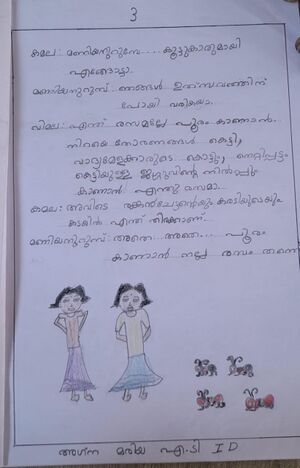 3
കമല: മണിയനുറുമ്പേ..... കൂട്ടുകാരുമായി
എങ്ങോട്ടാ.
മണിയനുറുമ്പ്: ഞങ്ങൾ ഉത്സവത്തിന്
പോയി വരികയാ.
വിമല: എന്ത് രസമല്ലേ പൂരം കാണാൻ..
നിറയെ തോരണങ്ങൾ കെട്ടി,
വാദ്യമേളക്കാരുടെ കൊട്ടും, നെറ്റിപ്പട്ടം
കെട്ടിയുള്ള നിൽപ്പും
കാണാൻ എന്തു രസമാ...
കമല: അവിടെ
കടയിൽ എന്ത് തിരക്കാണ്..
മണിയനുറുമ്പ്: അതെ... അതെ... പൂരം
കാണാൻ നല്ല രസം തന്നെ
അഗ്ന മരിയ എ.ടി I D